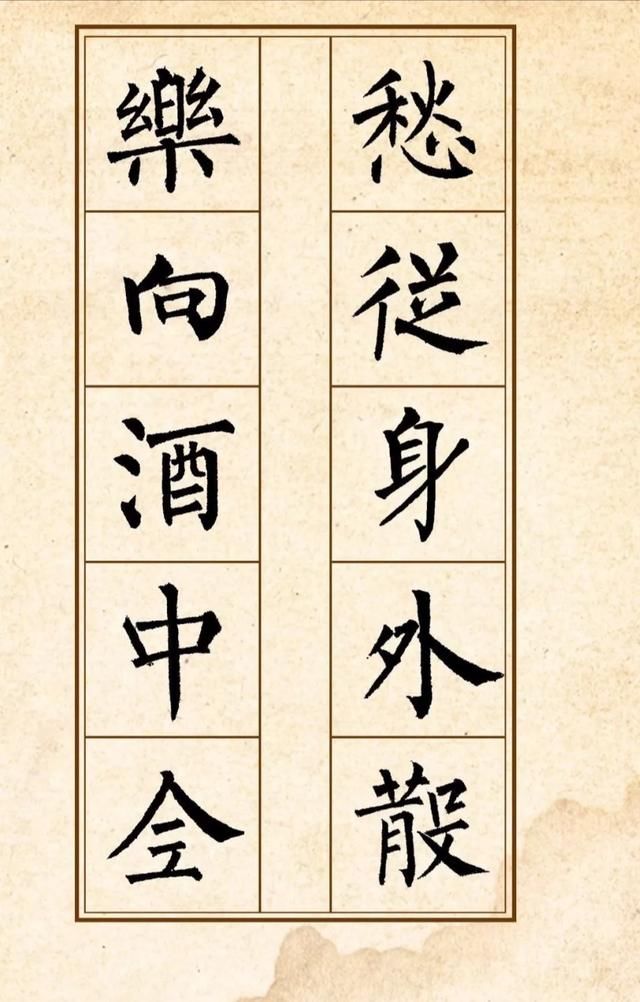 愁從身外散
樂向酒中全